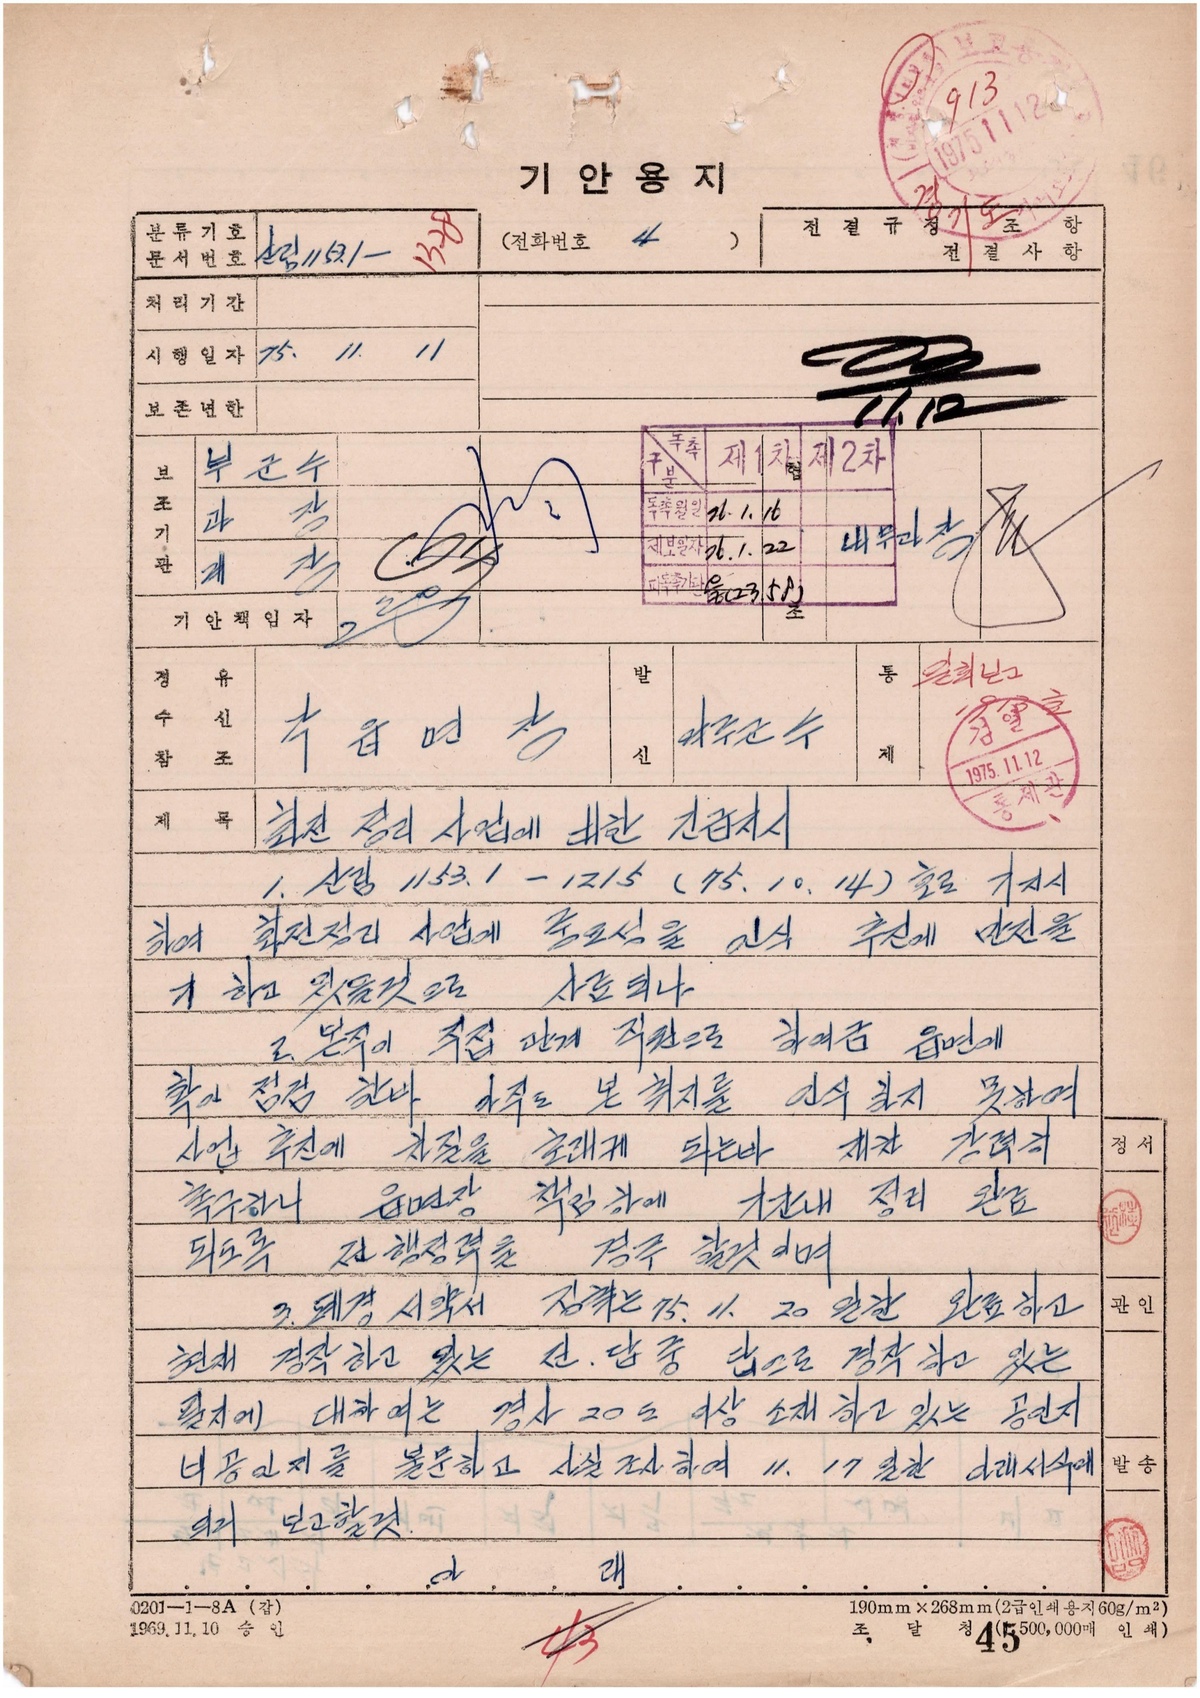 913
1975.11.12
경기도
기안용지
분류기호
문서번호
산림 1153.1—
1328
(전화번호 4 )
전결규정 조 항
전결사항
처리기간
시행일자
75. 11. 11
보존년한
11.12
보조기관
부군수
과 장
계 장
기안책임자
독촉
구분
제1차
제2차
독촉월일
76.1.16
제보일자
76.1.22
피독촉기관
읍(23.58)
조
협
내무과장
경 유
수 신
참 조
각 읍 면 장
발 신
군수
통 제
검열
1975.11.12
통제관
제 목
화전 정리 사업에 대한 긴급지시
1. 산림 1153.1 - 1215 (75. 10. 14) 호로 기지시
하여 화전정리 사업에 중요성을 인식 추진에 만전을
기 하고 있을것으로 사료되나
2. 본직이 직접 관계 직원으로 하여금 읍면에
확인 점검 한바 아직도 본 취지를 인식 하지 못하여
사업 추진에 차질을 초래케 되는바 재차 강력히
촉구하니 읍면장 책임하에 기간내 정리 완료
되도록 전 행정력을 경주 할것이며
3. 폐경 서약서 징취는 75. 11. 20 일한 완료하고
현재 경작하고 있는 전.답중 답으로 경작하고 있는
필지에 대하여는 경사 20도 이상 소재하고 있는 공인지
비공인지를 불문하고 사실조사하여 11. 17 일한 아래서식에
의거 보고할것.
아 래
정서
관인
발송
0201—1—8A (갑)
1969.11.10 승인
190mm×268mm(2급인쇄용지60g/m²)
조 달 청 (1,500,000매 인쇄)
45